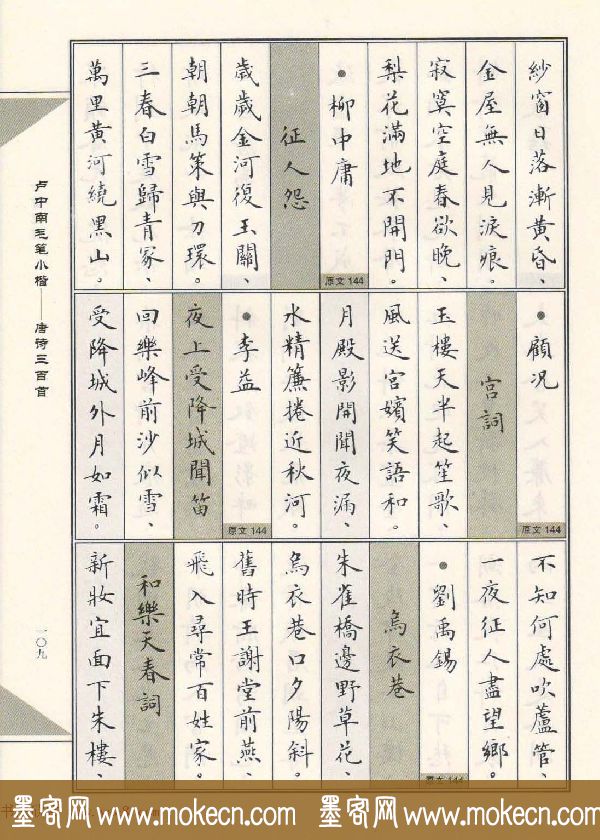 紗窗日落漸黃昏、
金屋無人見淚痕。
寂寞空庭春欲晚、
梨花滿地不開門。
•柳中庸
原文 144
征人怨
歲歲金河復玉關、
朝朝馬策與刀環。
三春白雪歸青冢、
萬里黃河繞黑山。
•顧況
原文 144
宮詞
玉樓天半起笙歌、
風送宮嬪笑語和。
月殿影開聞夜漏、
水精簾捲近秋河。
•李益
原文 144
夜上受降城聞笛
回樂峰前沙似雪、
受降城外月如霜。
不知何處吹蘆管、
一夜征人盡望鄉。
•劉禹錫
原文 144
烏衣巷
朱雀橋邊野草花、
烏衣巷口夕陽斜。
舊時王謝堂前燕、
飛入尋常百姓家。
和樂天春詞
新妝宜面下朱樓、
卢中南毛笔小楷——唐诗三百首
一〇九
墨客网 www.mokecn.com 墨客网 www.mokecn.com